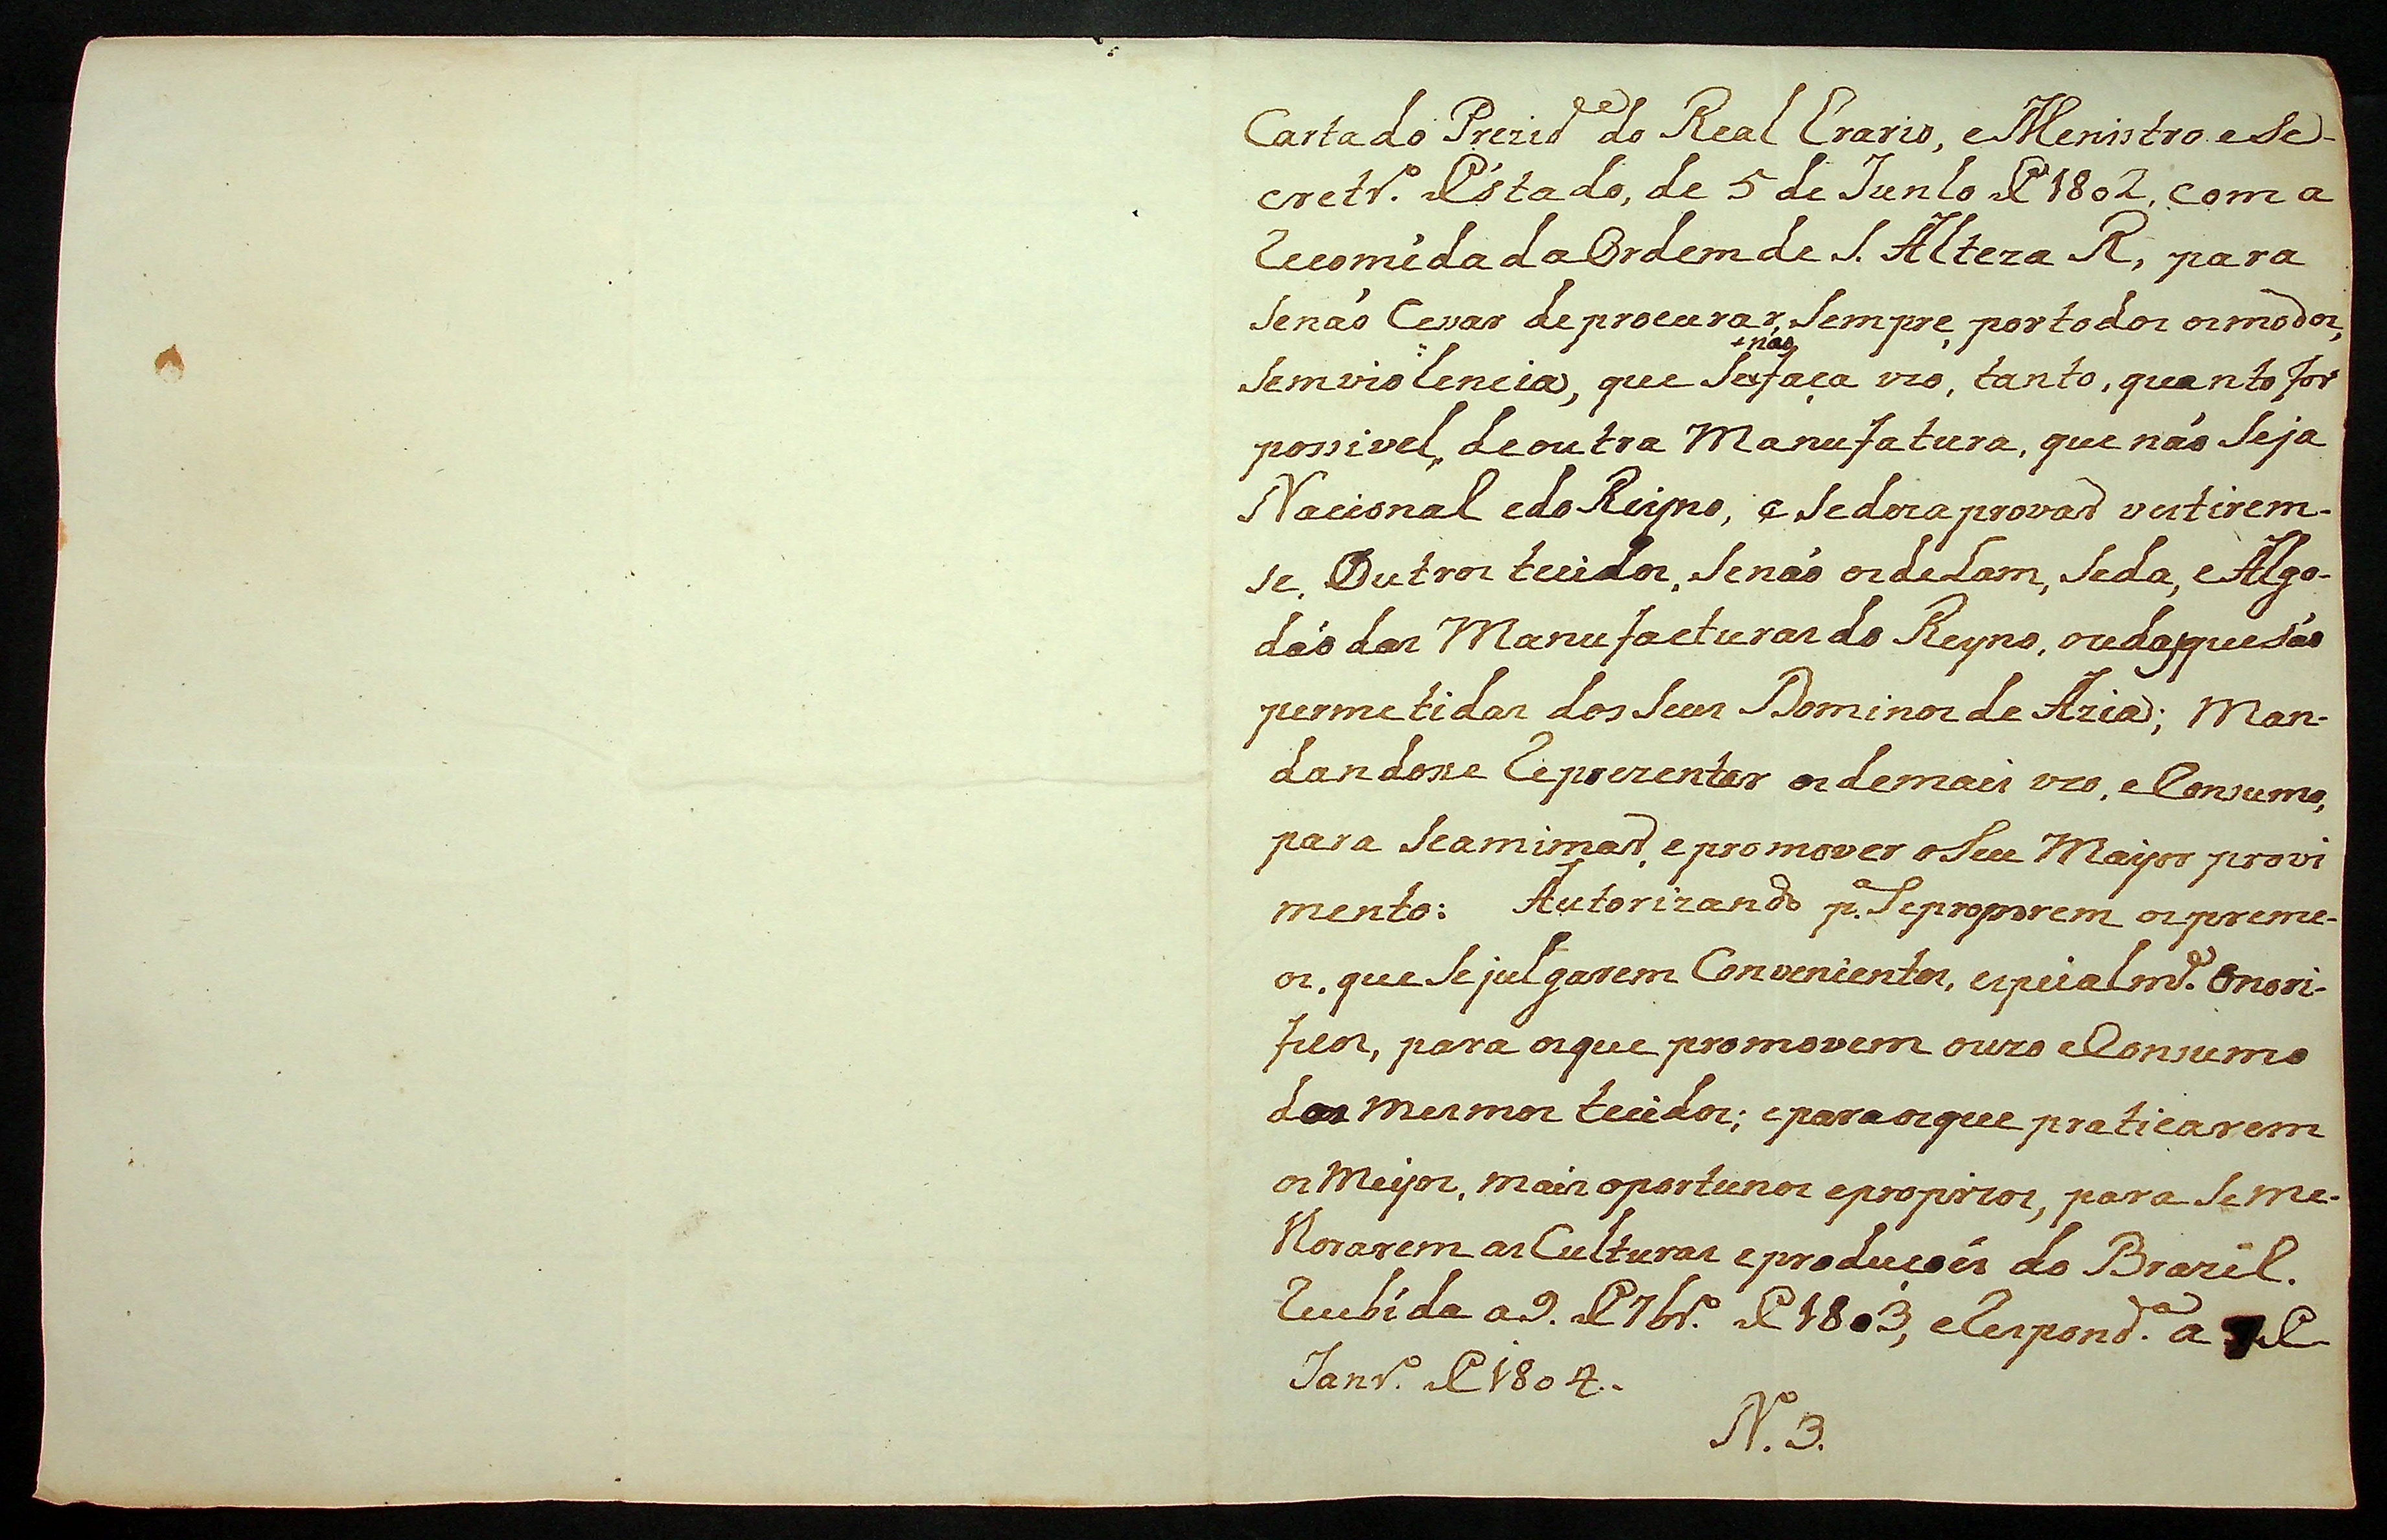 Carta do Prezid.e do Real Erario, e Menistro e Se-
cretr.o d'Estado, de 5 de Junho d'e 1802, com a
Recomēda da Ordem de S. Alteza R, para
se naõ Cesar de procurar, Sempre, por todos os modos,
sem violencia, que se +naõ faça uzo, tanto, quanto for
possivel, de outra Manufatura, que naõ Seja
Nacional e do Reyno, e se dezaprovar vestirem-
se, Outros tecidos, Senaõ os de Lam, Seda, e Algo-
daõ das Manufacturas do Reyno, ou das que saõ
permetidas dos Seus Dominos de Azia; Man-
dandosse Reprezentar os demais uzo, e Consumo,
para Se animar, e promover o Seu Mayor provi
mento: Autorizando p.a Se proporem os preme-
os, que Se julgarem Convenientes, especialm.e Onori-
ficos, para os que promovem o uzo e Consumo
dos mesmos tecidos; e para os que praticarem
os Meyos, mais oportunos e propizios, para Se me-
lhorarem as Culturas e produçoẽs do Brazil.
Recebida a 9. de 7br.o de 1803, e Respond.a a 7 de
Janr.o de 1804.
N.o 3.